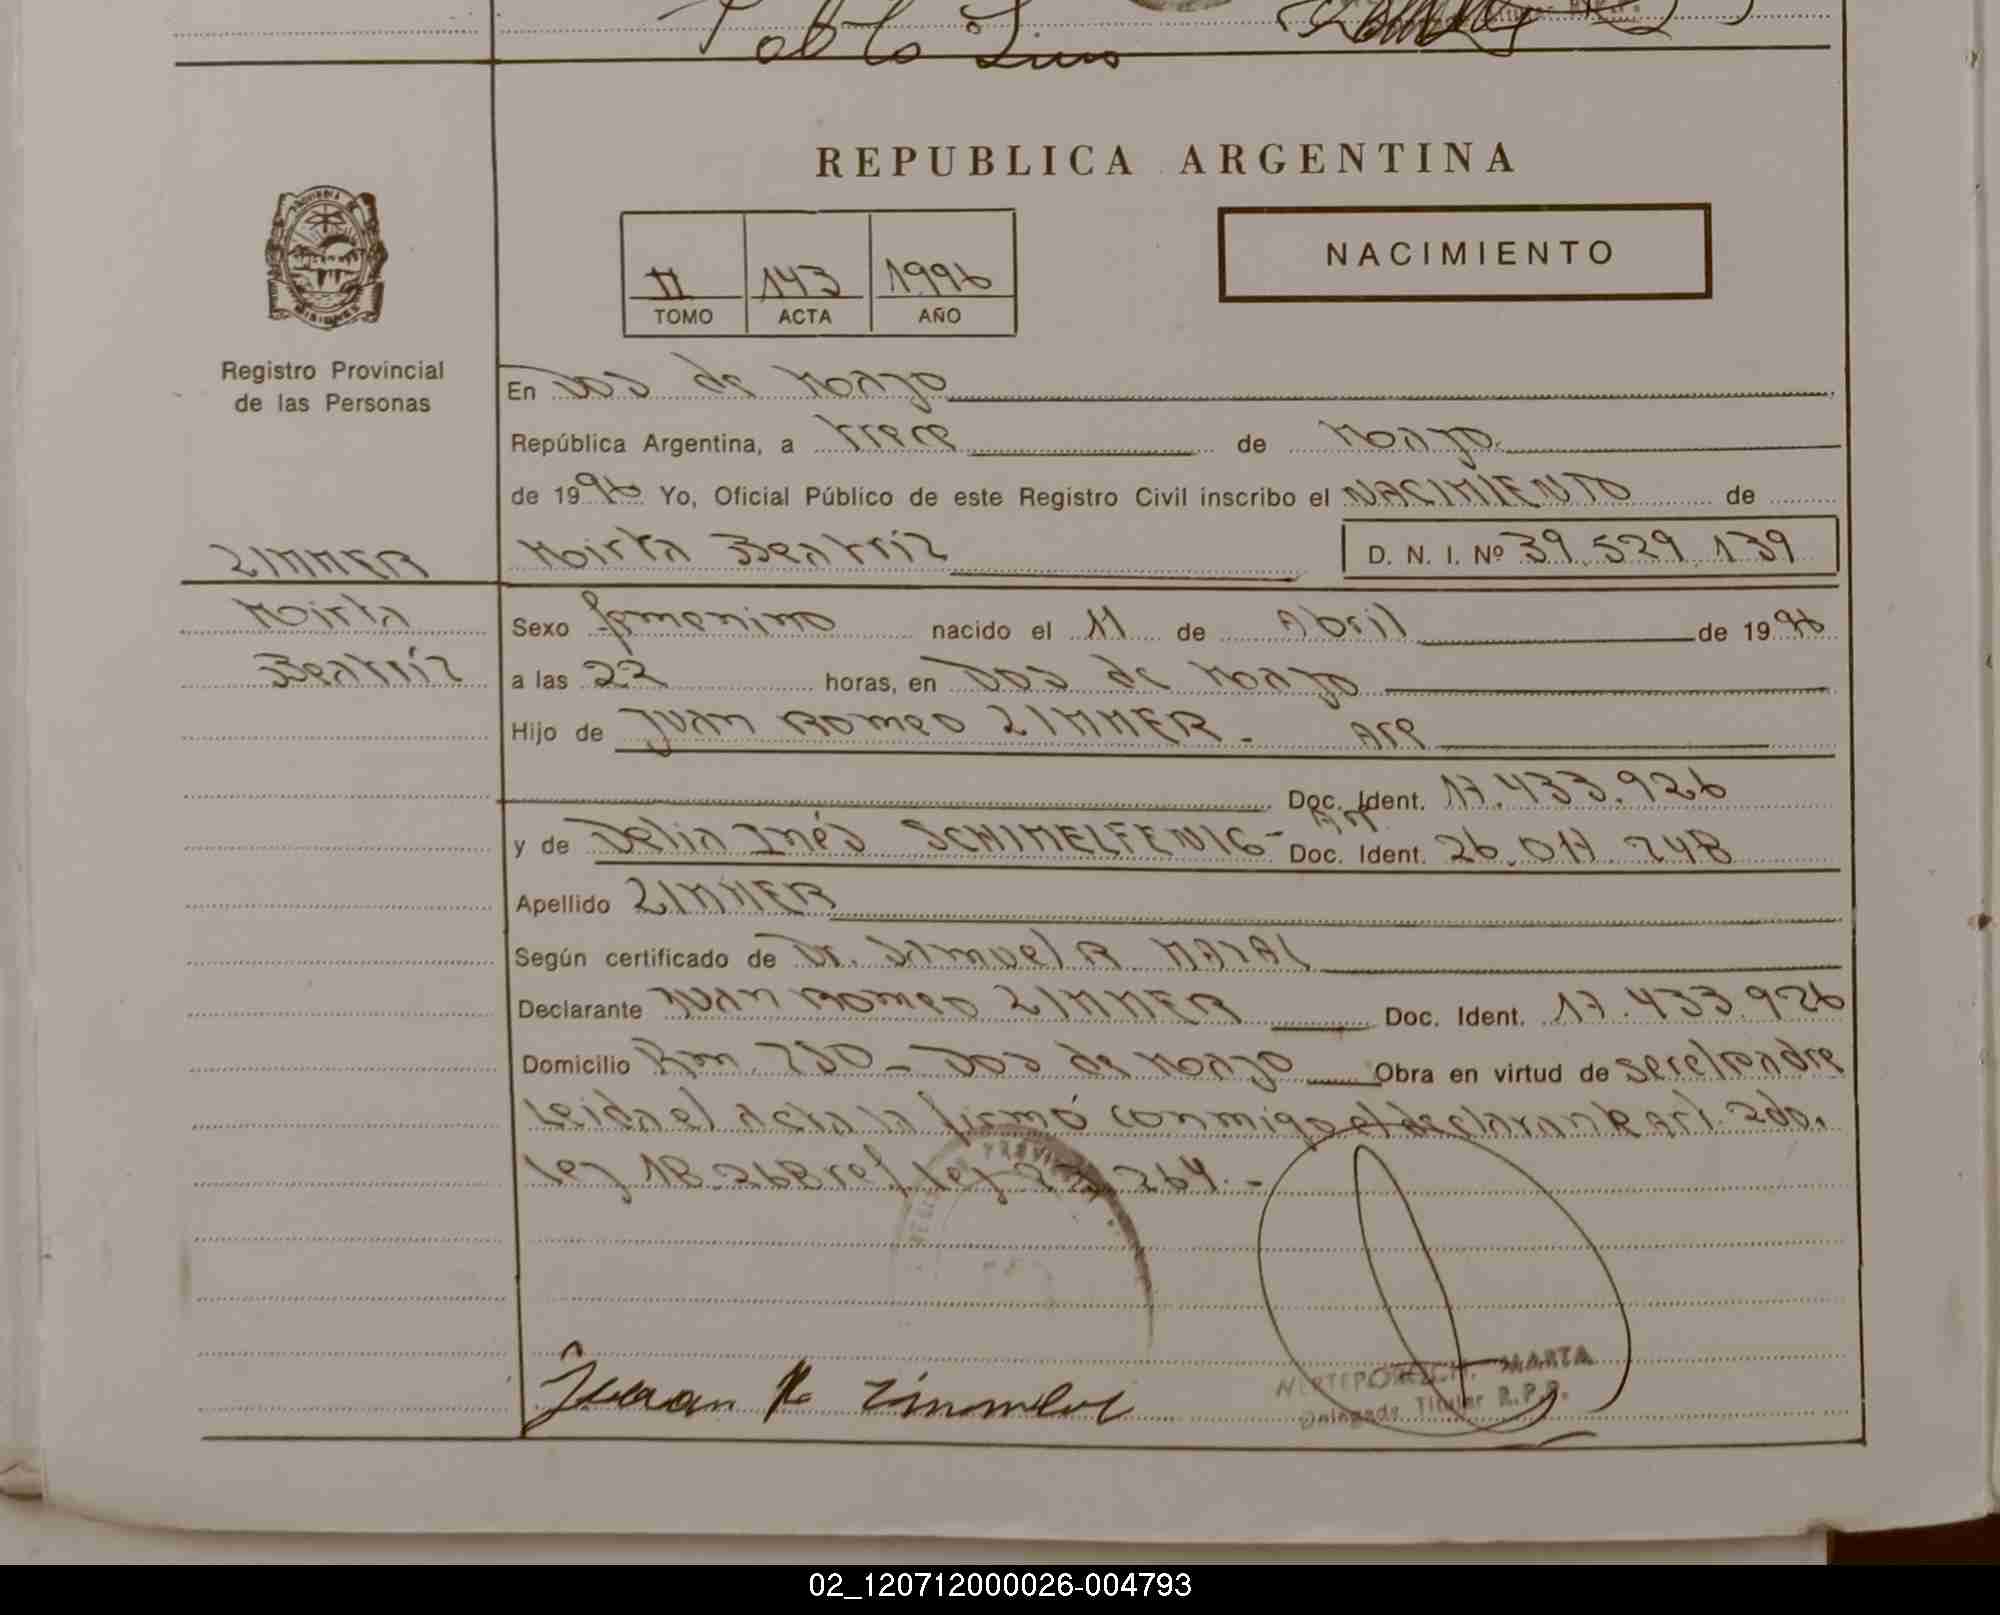 Pablo Luis
REPUBLICA ARGENTINA
NACIMIENTO
II 143 1996
TOMO ACTA AÑO
Registro Provincial
de las Personas
En Dos de Mayo
República Argentina, a trece de Mayo.
de 1996 Yo, Oficial Público de este Registro Civil inscribo el NACIMIENTO de
ZIMMER Mirta Beatriz D. N. I. Nº 39.529.139
Mirta Sexo femenino nacido el 11 de Abril de 1996
Beatriz a las 22 horas, en Dos de Mayo
Hijo de Juan Romeo ZIMMER - Arg
Doc. Ident. 17.433.926
y de Delia Inés SCHIMELFENIG - Arg Doc. Ident. 26.011.248
Apellido ZIMMER
Según certificado de Dr. Samuel R
Declarante Juan Romeo ZIMMER Doc. Ident. 17.433.926
Domicilio Km. 250 - Dos de Mayo Obra en virtud de ser el padre
leida el acta la firmó conmigo el declarante Art. 2do.
ley 18.268 ref ley 22.264. -
Juan R Zimmer
MARTA
Delegado Titular R.P.P.
02_120712000026-004793